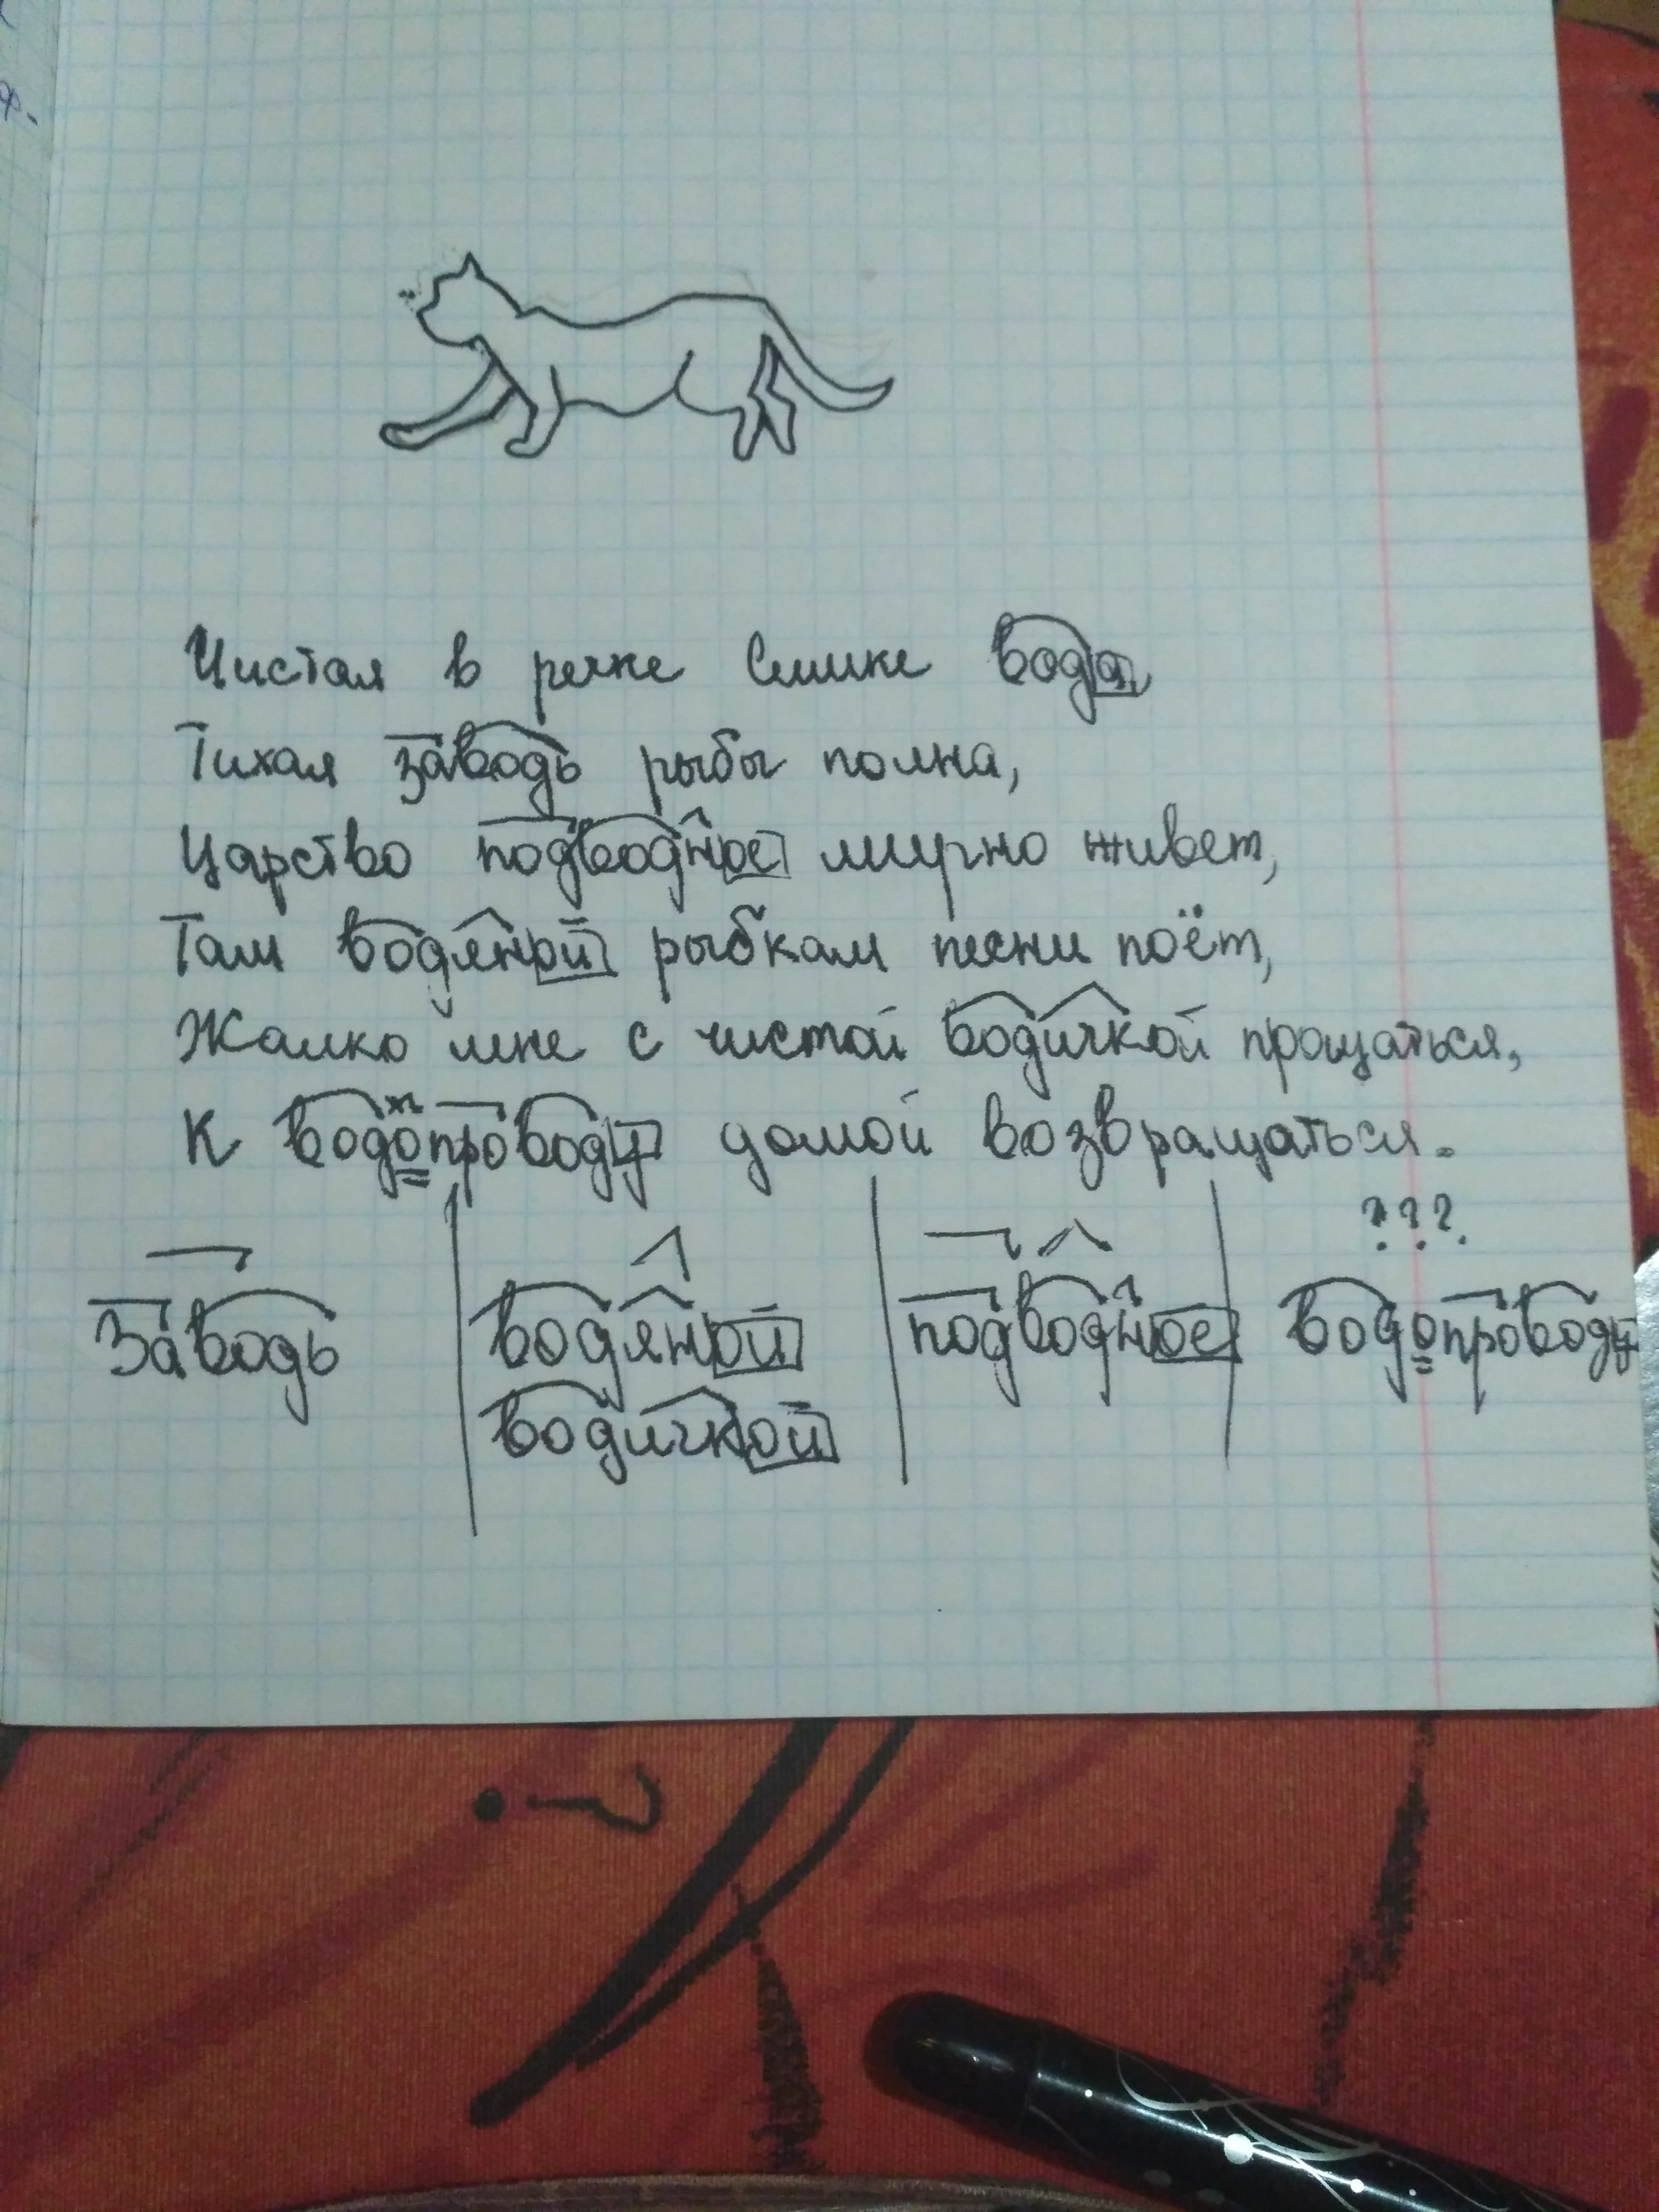 Чистая в речке Синике вода
Тихая заводь рыбы полна,
Царство подводное мирно живет,
Там водяной рыбкам песни поёт,
Жалко мне с чистой водичкой прощаться,
К водопроводу домой возвращаться.
???
Заводь водяной подводное водопроводу
водичкой